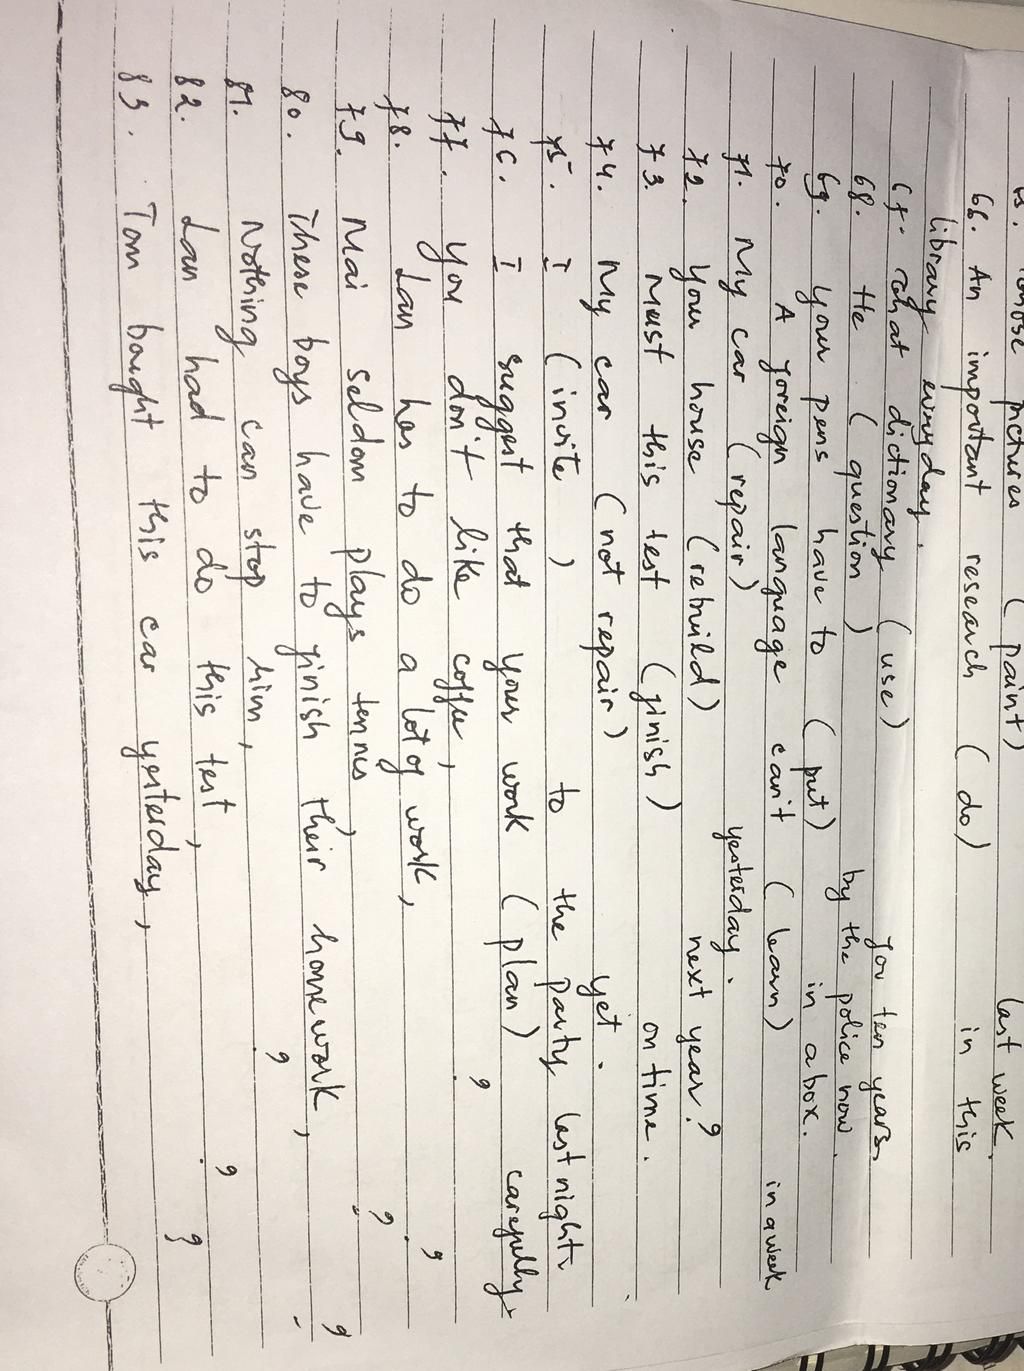 pictures (paint) last week.
66. An important research (do) in this
library everyday.
67. That dictionary (use) you ten years,
68. He (question) by the police now.
69. Your pens have to (put) in a box.
70. A foreign language can't (learn) in a week
71. My car (repair) yesterday.
72. Your house (rebuild) next year?
73. Must this test (finish) on time.
74. My car (not repair) yet.
75. I (invite) to the party last night.
76. I suggest that your work (plan) carefully.
77. You don't like coffee, ?
78. Lan has to do a lot of work, ?
79. Mai seldom plays tennis, ?
80. These boys have to finish their homework, ?
81. Nothing can stop him, ?
82. Lan had to do this test, ?
83. Tom bought this car yesterday, ?